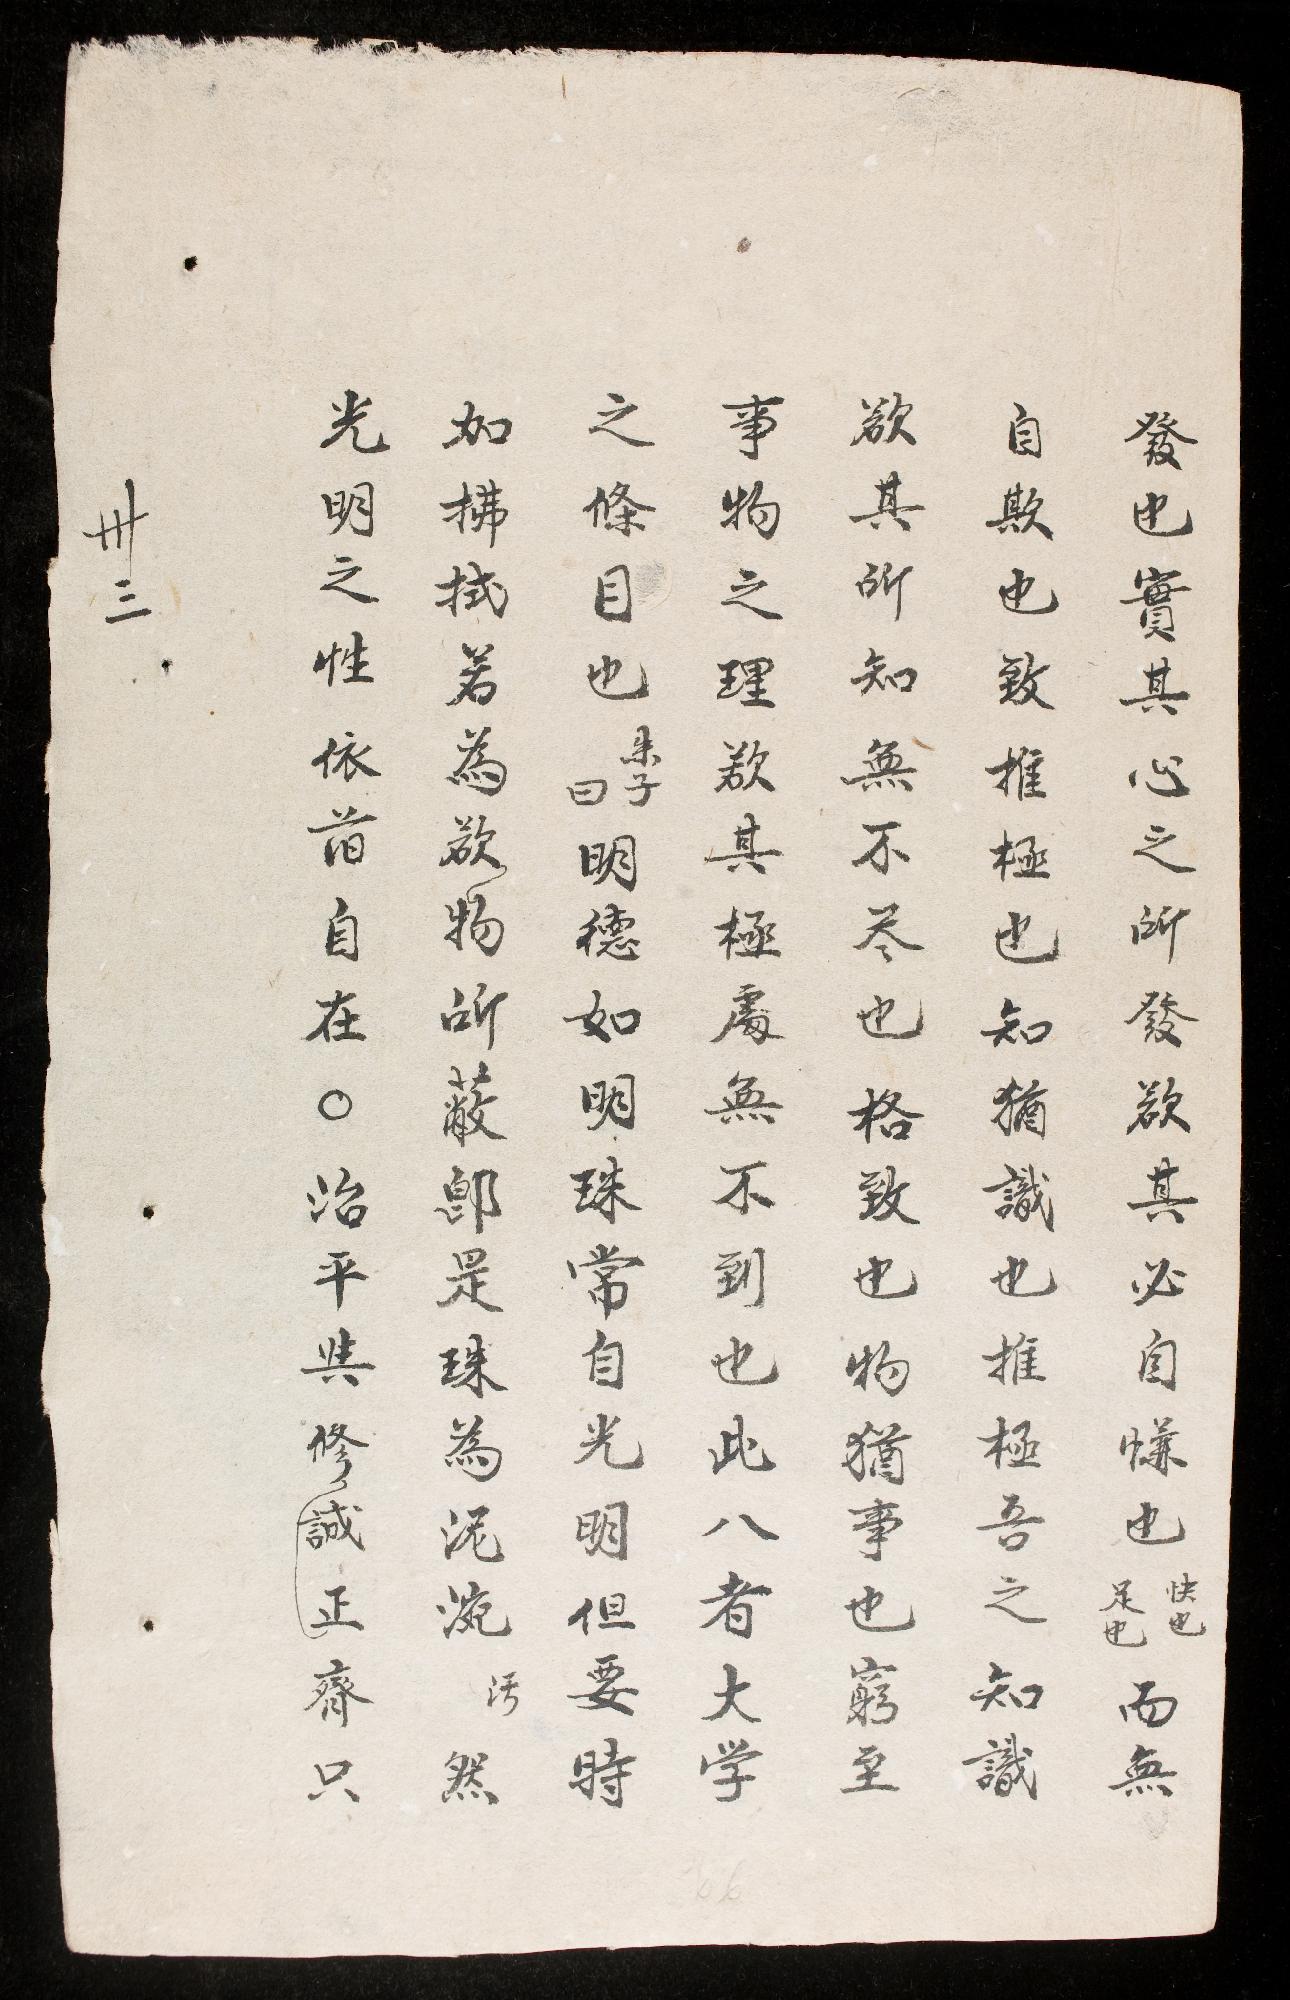 發也實其心之所發欲其必自慊也快也足也而無
自欺也致推極也知猶識也推極吾之知識
欲其所知無不尽也格致也物猶事也窮至
事物之理欲其極處無不到也此八者大学
之條目也朱子曰明德如明珠常自光明但要時
如拂拭若為欲物所蔽即是珠為泥涴汚然
光明之性依旧自在○治平與修誠正齊只
卅三